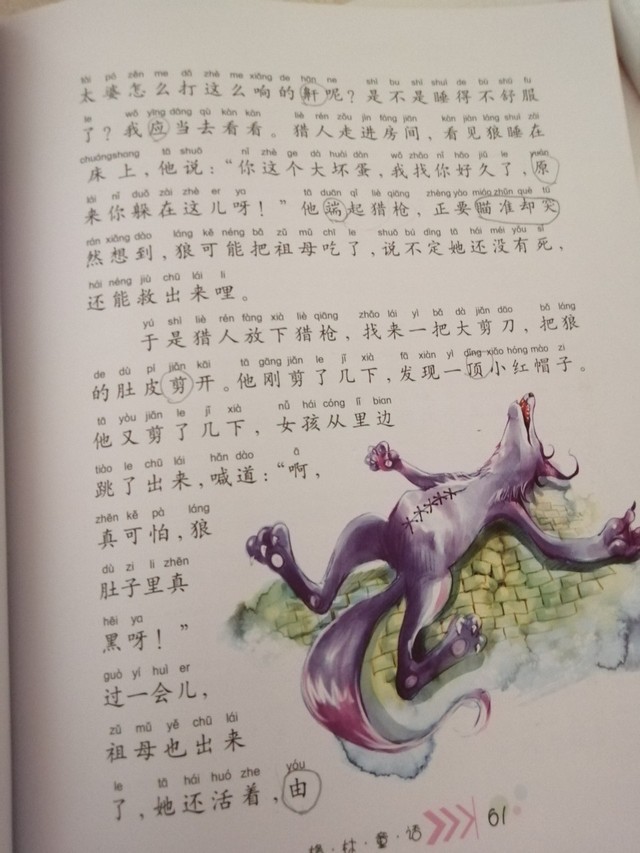 tài pó zěn me dǎ zhè me xiǎng de hān ne shì bu shì shuì de bù shū fu
太婆怎么打这么响的鼾呢？是不是睡得不舒服
le wǒ yīng dāng qù kàn kàn liè rén zǒu jìn fáng jiān kàn jiàn láng shuì zài
了？我应当去看看。猎人走进房间，看见狼睡在
chuángshang tā shuō nǐ zhè ge dà huài dàn wǒ zhǎo nǐ hǎo jiǔ le yuán
床上，他说：“你这个大坏蛋，我找你好久了，原
lái nǐ duǒ zài zhè er ya tā duān qǐ liè qiāng zhèng yào miáo zhǔn què tū
来你躲在这儿呀！”他端起猎枪，正要瞄准却突
rán xiǎng dào láng kě néng bǎ zǔ mǔ chī le shuō bú dìng tā hái méi yǒu sǐ
然想到，狼可能把祖母吃了，说不定她还没有死，
hái néng jiù chū lái li
还能救出来哩。
yú shì liè rén fàng xià liè qiāng zhǎo lái yì bǎ dà jiǎn dāo bǎ láng
于是猎人放下猎枪，找来一把大剪刀，把狼
de dù pí jiǎn kāi tā gāng jiǎn le jǐ xià fā xiàn yì dǐng xiǎo hóng mào zi
的肚皮剪开。他刚剪了几下，发现一顶小红帽子。
tā yòu jiǎn le jǐ xià nǚ hái cóng lǐ bian
他又剪了几下，女孩从里边
tiào le chū lái hǎn dào ā
跳了出来，喊道：“啊，
zhēn kě pà láng
真可怕，狼
dù zi li zhēn
肚子里真
hēi ya
黑呀！”
guò yí huì er
过一会儿，
zǔ mǔ yě chū lái
祖母也出来
le tā hái huó zhe yóu
了，她还活着，由
格·林·童·话 61